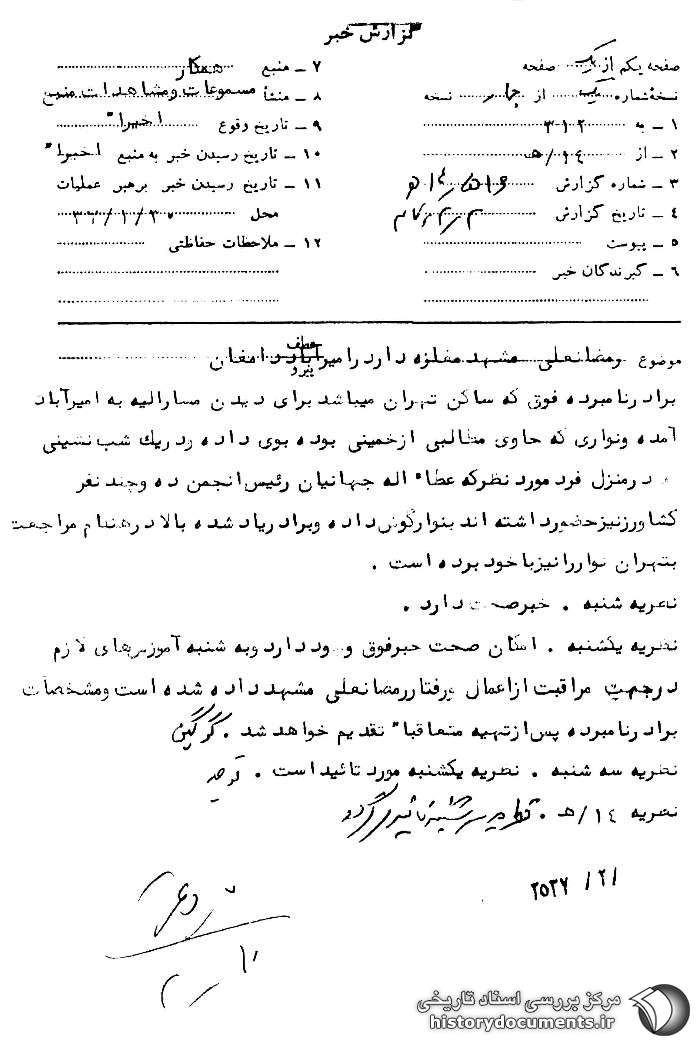 گزارش خبر
صفحه یکم از یک صفحه
نسخهٔ شماره یک از چهار نسخه
۱ – به ۳۱۲
۲ – از ۱٤/هـ
۳ – شماره گزارش
٤ – تاریخ گزارش
٥ – پیوست
٦ – گیرندگان خبر
۷ – منبع همکار
۸ – منشأ مسموعات ومشاهدات منبع
۹ – تاریخ وقوع اخیرا"
۱۰ – تاریخ رسیدن خبر به منبع اخیرا"
۱۱ – تاریخ رسیدن خبر برهبر عملیات
محل ۳۷/۱/۳۰
۱۲ – ملاحظات حفاظتی
موضوع رمضانعلی مشهد مغازه دارد رامیرآباد دامغان
عطف
پیرو
برادرنامبرده فوق که ساکن تهران میباشد برای دیدن مشارالیه به امیرآباد
آمده ونواری که حاوی مطالبی ازخمینی بوده بوی داده ودریك شب نشینی
درمنزل فرد مورد نظرکه عطاء اله جهانیان رئیس انجمن ده وچند نفر
کشاورزنیزحضورداشته اند بنوارگوش داده وبرادریاد شده بالا درهنگام مراجعت
بتهران نواررانیزباخود برده است .
نظریه شنبه . خبرصحت دارد .
نظریه یکشنبه . امکان صحت خبرفوق وجود دارد وبه شنبه آموزشهای لازم
درجهت مراقبت ازاعمال ورفتاررمضانعلی مشهد داده شده است ومشخصات
برادرنامبرده پس ازتهیه متعاقبا" تقدیم خواهد شد . گرگین
نظریه سه شنبه . نظریه یکشنبه مورد تائید است . توحید
نظریه ۱٤/هـ .
۲٥۳۷/۲/۱
مرکز بررسی اسناد تاریخی
historydocuments.ir